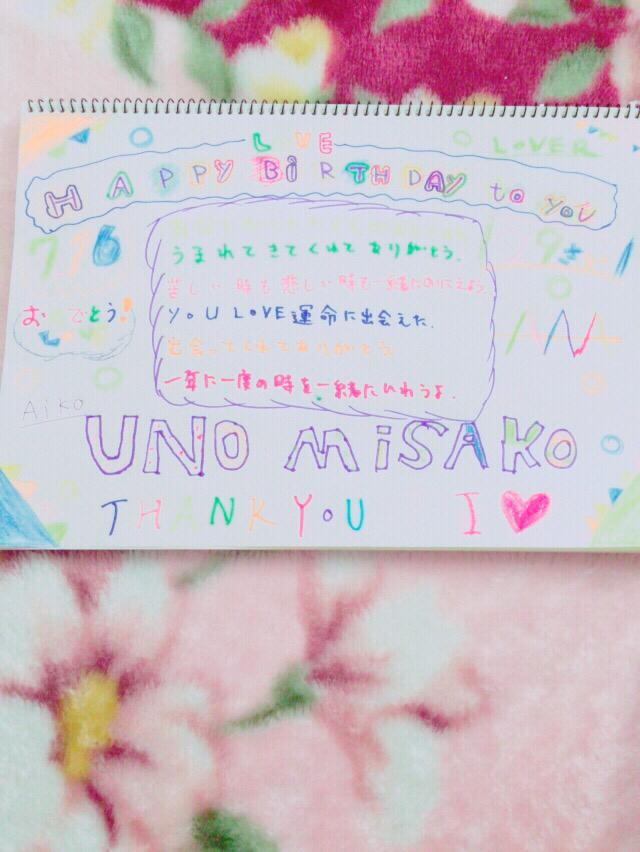 LOVE
LOVER
HAPPY BiRTHDAY to you
716
うまれてきてくれてありがとう.
29さい!
苦しい時も悲しい時も一緒にのりこえよう.
おめでとう!
YOU LOVE 運命に出会えた.
AAA
出会ってくれてありがとう
一年に一度の時を一緒にいわうよ.
Aiko
UNO MiSAKO
THANK YOU I ♥